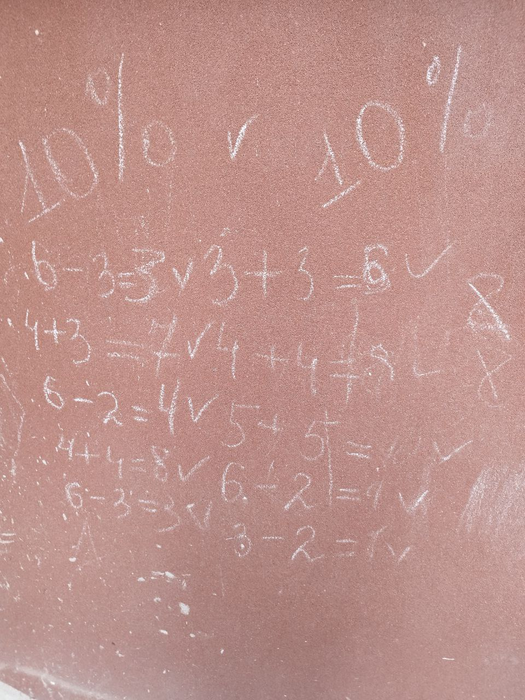 10% ✓ 10%
6-3=3 ✓ 3+3=6 ✓
4+3=7 ✓ 4+4=8 ✓
6-2=4 ✓ 5+5= ✓
4+4=8 ✓ 6-2= ✓
6-3=3 ✓ 3-2=1 ✓